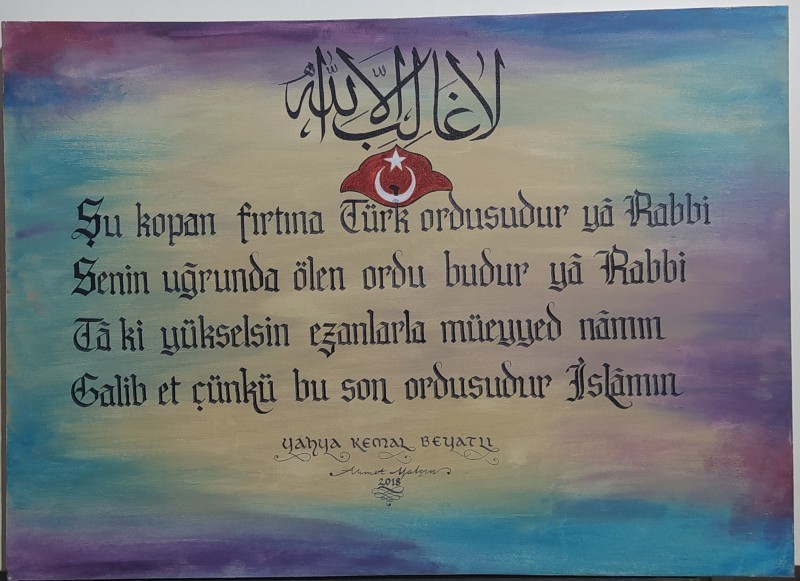 لا غالب الا الله
Şu kopan fırtına Türk ordusudur yâ Rabbi
Senin uğrunda ölen ordu budur yâ Rabbi
Tâ ki yükselsin ezanlarla müeyyed nâmın
Galib et çünkü bu son ordusudur İslâmın
YAHYA KEMAL BEYATLI
Ahmet Yalçın
2018